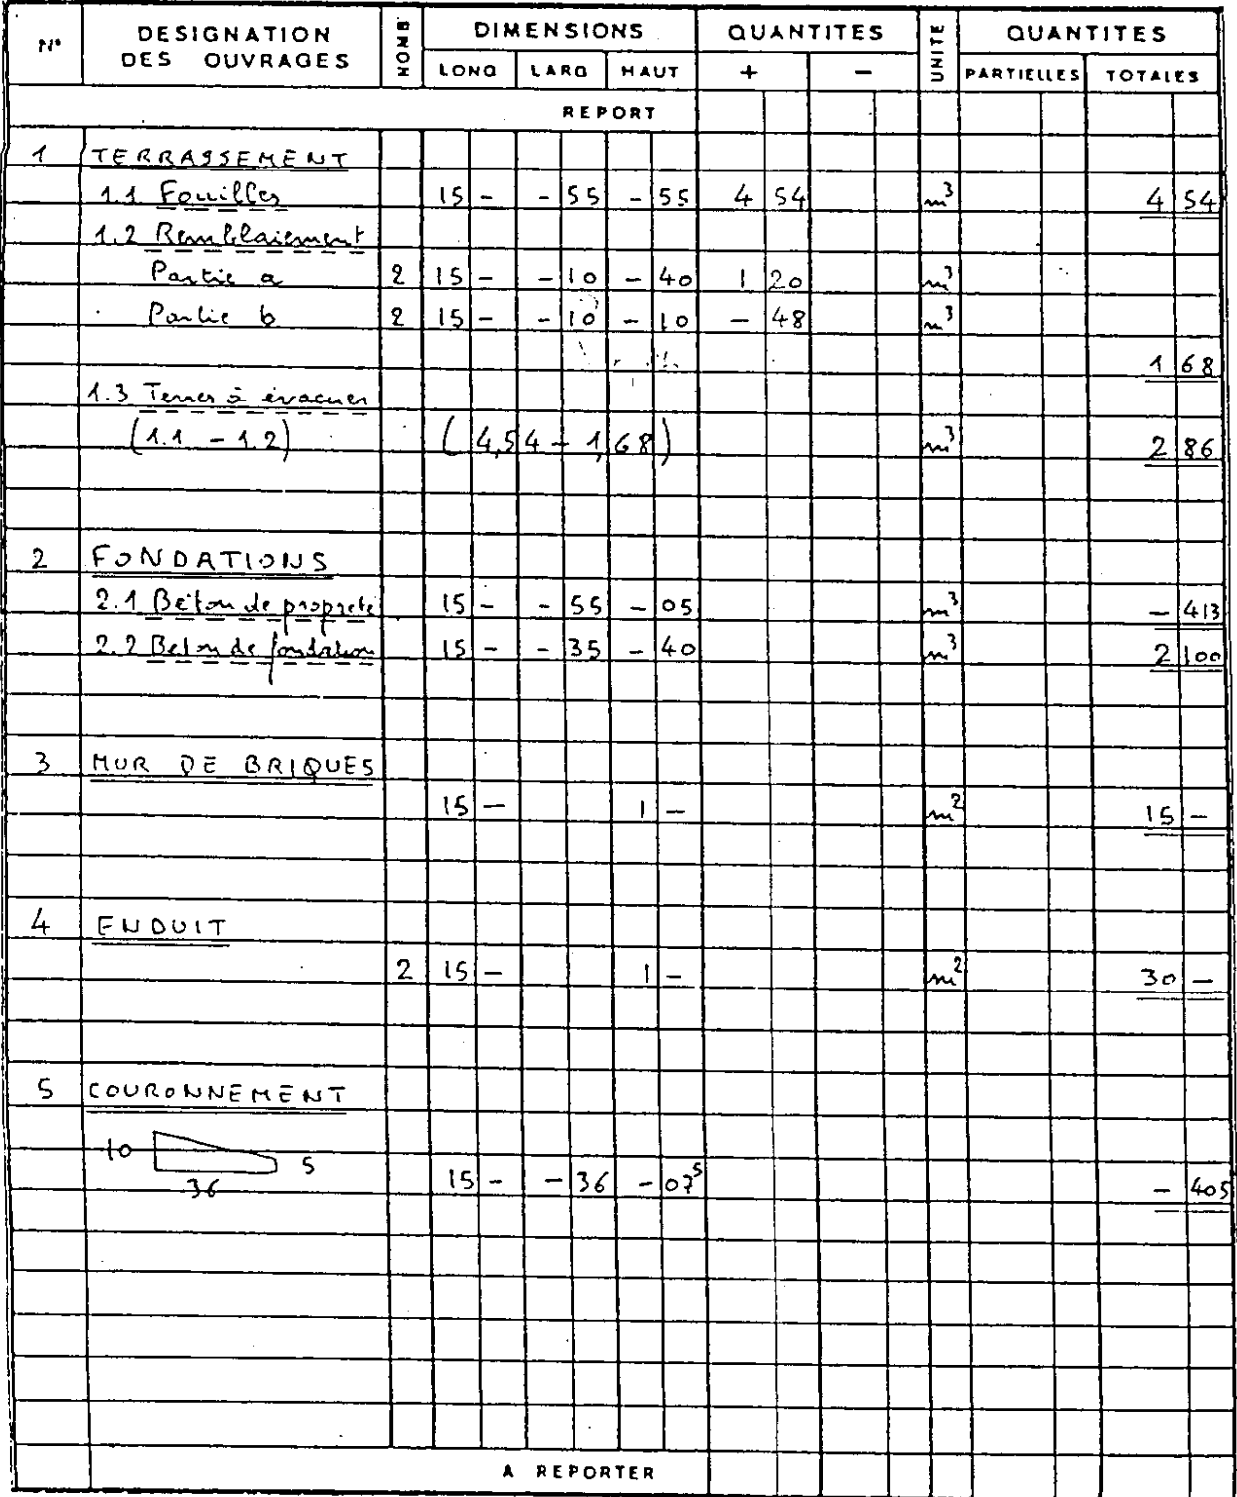 N° DESIGNATION DES OUVRAGES NOMB DIMENSIONS QUANTITES UNITE QUANTITES
LONG LARG HAUT + — PARTIELLES TOTALES
REPORT
1 TERRASSEMENT
1.1 Fouilles 15 - - 55 - 55 4 54 m³ 4 54
1.2 Remblaiement
Partie a 2 15 - - 10 - 40 1 20 m³
Partie b 2 15 - - 10 - 10 - 48 m³
1 68
1.3 Terres à évacuer
(1.1 - 1.2) (4,54 - 1,68) m³ 2 86
2 FONDATIONS
2.1 Béton de propreté 15 - - 55 - 05 m³ - 413
2.2 Béton de fondation 15 - - 35 - 40 m³ 2 100
3 MUR DE BRIQUES
15 - 1 - m² 15 -
4 ENDUIT
2 15 - 1 - m² 30 -
5 COURONNEMENT
10 5
36 15 - - 36 - 07⁵ - 405
A REPORTER